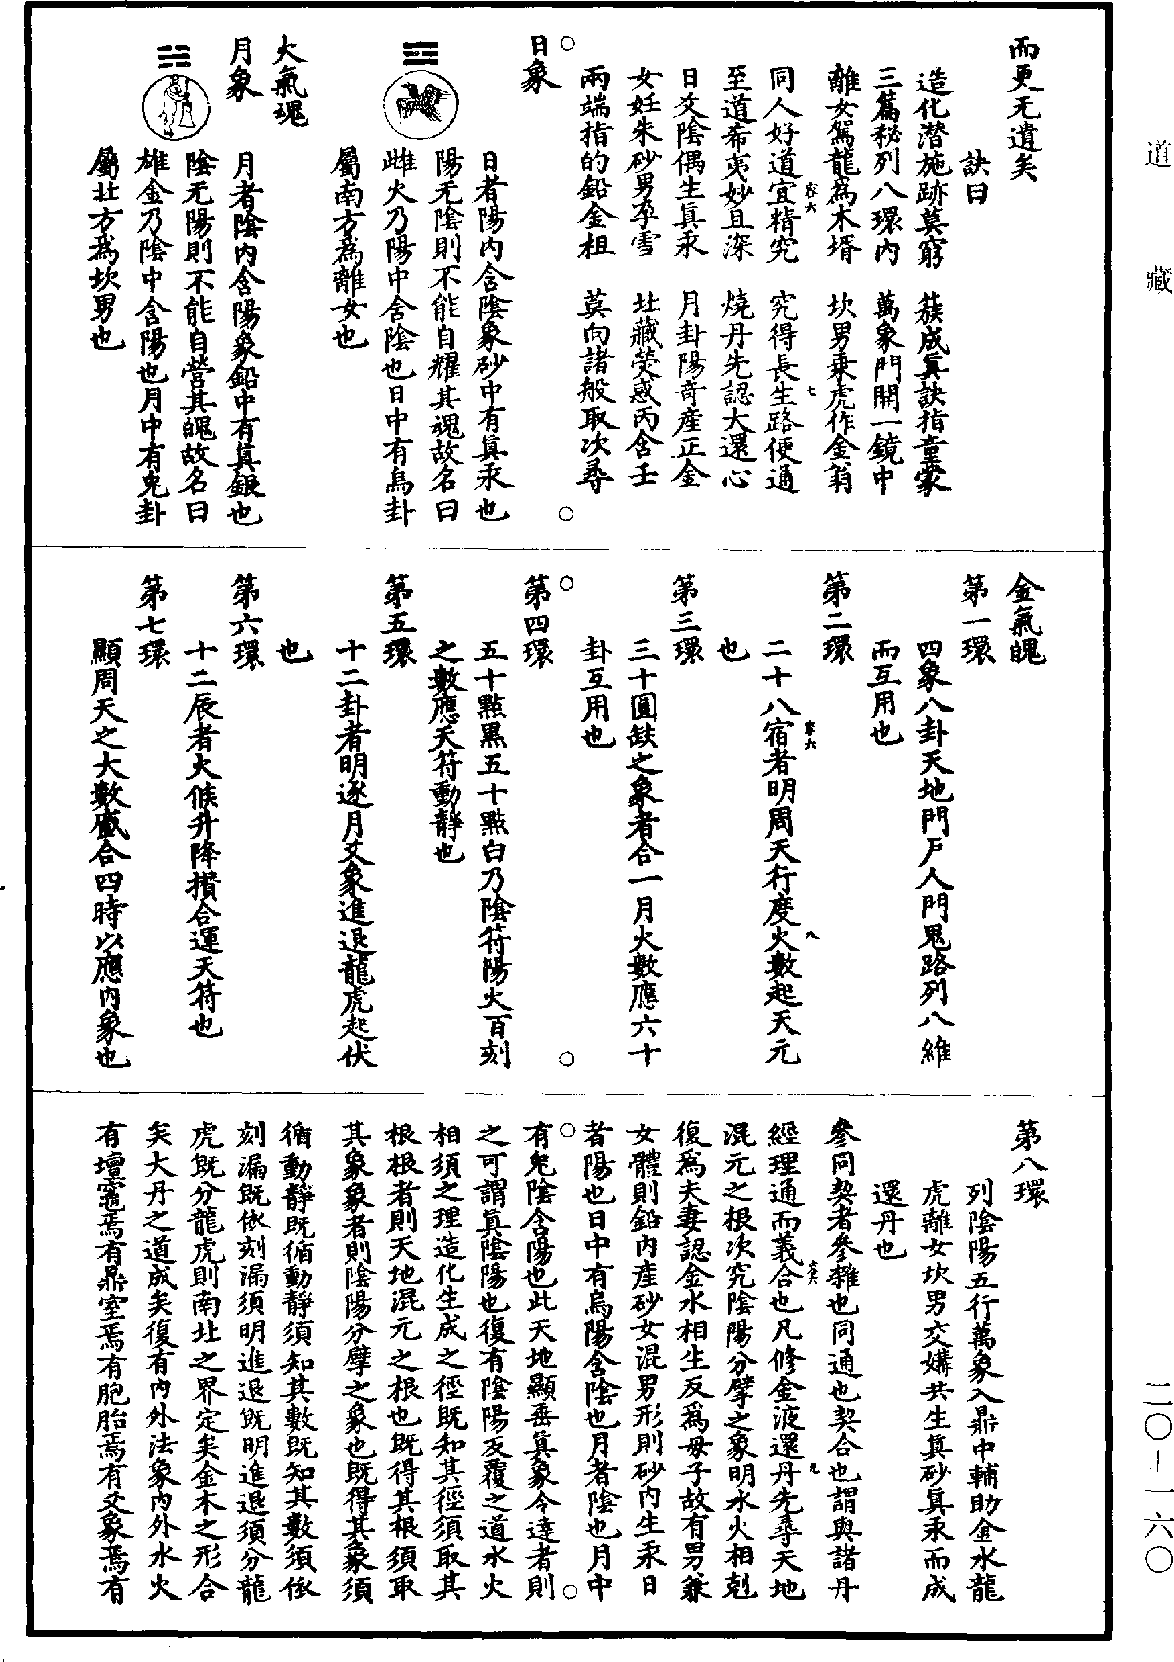 道藏
二〇—一六〇
而更无遺矣
訣曰
造化潛施跡莫窮　簇成眞訣指童蒙
三篇秘列八環內　萬象門開一鏡中
離女駕龍爲木壻　坎男乘虎作金翁
同人好道宜精究　究得長生路便通
至道希夷妙且深　燒丹先認大還心
日爻陰偶生眞汞　月卦陽奇產正金
女妊朱砂男孕雪　北藏熒惑丙含壬
兩端指的鉛金祖　莫向諸般取次尋
日象
日者陽內含陰象砂中有眞汞也
陽无陰則不能自耀其魂故名曰
雌火乃陽中含陰也日中有烏卦
屬南方爲離女也
火氣魂
月象
月者陰內含陽象鉛中有眞銀也
陰无陽則不能自營其魄故名曰
雄金乃陰中含陽也月中有兔卦
屬北方爲坎男也
金氣魄
第一環
四象八卦天地門戶人門鬼路列八維
而互用也
第二環
二十八宿者明周天行度火數起天元
也
第三環
三十圓缺之象者合一月火數應六十
卦互用也
第四環
五十點黑五十點白乃陰符陽火百刻
之數應天符動靜也
第五環
十二卦者明逐月爻象進退龍虎起伏
也
第六環
十二辰者火候升降攢合運天符也
第七環
顯周天之大數盛合四時以應內象也
第八環
列陰陽五行萬象入鼎中輔助金水龍
虎離女坎男交媾共生眞砂眞汞而成
還丹也
參同契者參雜也同通也契合也謂與諸丹
經理通而義合也凡修金液還丹先尋天地
混元之根次究陰陽分擘之象明水火相剋
復爲夫妻認金水相生反爲母子故有男兼
女體則鉛內產砂女混男形則砂內生汞日
者陽也日中有烏陽含陰也月者陰也月中
有兔陰含陽也此天地顯垂眞象令達者則
之可謂眞陰陽也復有陰陽反覆之道水火
相須之理造化生成之徑旣知其徑須取其
根根者則天地混元之根也旣得其根須取
其象象者則陰陽分擘之象也旣得其象須
循動靜旣循動靜須知其數旣知其數須依
刻漏旣依刻漏須明進退旣明進退須分龍
虎旣分龍虎則南北之界定矣金木之形合
矣大丹之道成矣復有內外法象內外水火
有壇竈焉有鼎室焉有胞胎焉有爻象焉有